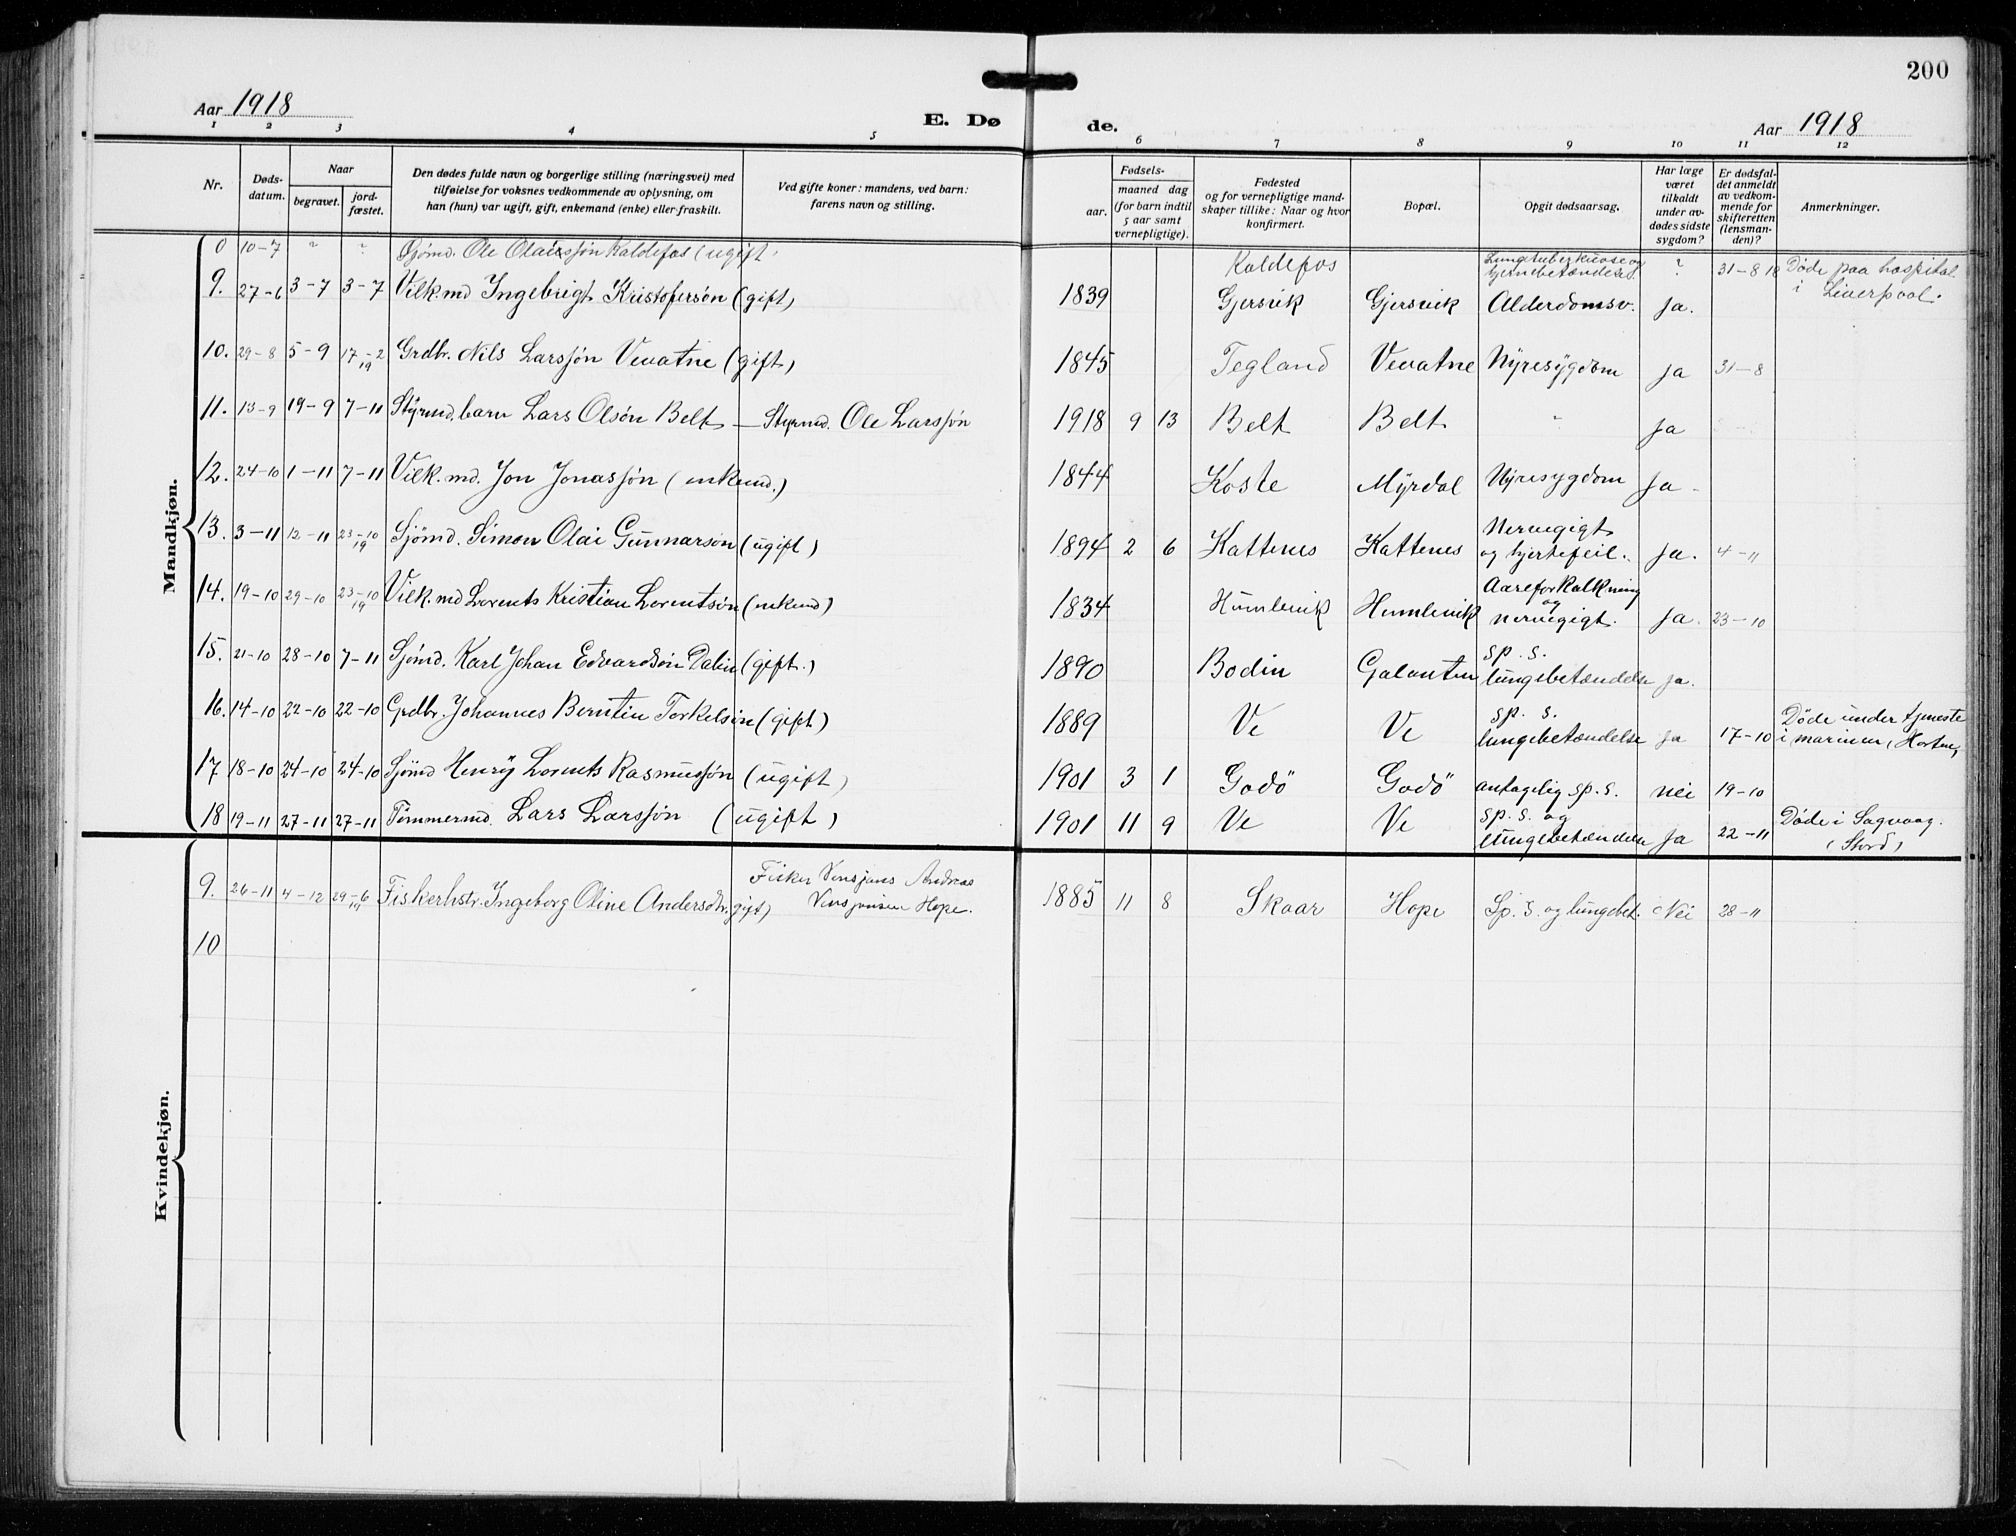 200
Aar 1918
E. Dø de.
Aar 1918
1 2 3 4 5 6 7 8 9 10 11 12
Nr.
Døds-
datum.
Naar
begravet.
jord-
fæstet.
Den dødes fulde navn og borgerlige stilling (næringsvei) med
tilføielse for voksnes vedkommende av oplysning, om
han (hun) var ugift, gift, enkemand (enke) eller fraskilt.
Ved gifte koner: mandens, ved barn:
farens navn og stilling.
Fødsels-
aar.
maaned dag
(for barn indtil
5 aar samt
vernepligtige).
Fødested
og for vernepligtige mand-
skaper tillike: Naar og hvor
konfirmert.
Bopæl.
Opgit dødsaarsag.
Har læge
været
tilkaldt
under av-
dødes sidste
sygdom?
Er dødsfal-
det anmeldt
av vedkom-
mende for
skifteretten
(lensman-
den)?
Anmerkninger.
Mandkjøn.
0 10-7 " ? Sjømd. Ole Olaissjøn Kaldefos (ugift) Kaldefos Lungetuberkulose og hjernebetændelse ? 31-8 19 Døde paa hospital i Liverpool.
9. 27-6 3-7 3-7 Vilk.md Ingebrigt Kristofersøn (gift) 1839 Gjersvik Gjersvik Alderdomsv. Ja.
10. 29-8 5-9 17-2 19 Grdbr. Nils Larssjøn Vevatne (gift) 1845 Tegland Vevatne Nyresygdom Ja 31-8
11. 13-9 19-9 7-11 Styrmd. barn Lars Olsøn Belt — Styrmd. Ole Larssjøn 1918 9 13 Belt Belt " Ja
12. 24-10 1-11 7-11 Vilk. md. Jon Jonassjøn (enkemd.) 1844 Koste Myrdal Nyresygdom Ja.
13. 3-11 12-11 23-10 19 Sjømd. Simon Olai Gunnarsøn (ugift) 1894 2 6 Kattenes Kattenes Nervegigt og hjertefeil. Ja. 4-11
14. 19-10 29-10 23-10 19 Vilk. md Lorents Kristian Lorentsøn (enkemd) 1834 Humlevik Humlevik Aareforkalkning og nervegigt. Ja. 23-10
15. 21-10 28-10 7-11 Sjømd. Karl Johan Edvardsøn Dalin (gift.) 1890 Bodin Galauten sp. s. lungebetændelse Ja.
16. 14-10 22-10 22-10 Grdbr. Johannes Berntin Torkelsøn (gift) 1889 Ve Ve sp. s. lungebetændelse Ja 17-10 Døde under tjeneste i marinen, Horten,
17 18-10 24-10 24-10 Sjømd Henry Lorents Rasmussjøn (ugift) 1901 3 1 Godö Godö antagelig sp. s. nei 19-10
18 19-11 27-11 27-11 Tømmermd. Lars Larssjøn (ugift) 1901 11 9 Ve Ve sp. s. og lungebetændelse Ja 22-11 Døde i Sagvaag. (Stord)
Kvindekjøn.
9. 26-11 4-12 29-6 19 Fiskerhstr. Ingeborg Oline Andersdtr. gift) Fisker Andreas Hope. 1885 11 8 Skaar Hope Sp. s. og lungebet. Nei 28-11
10